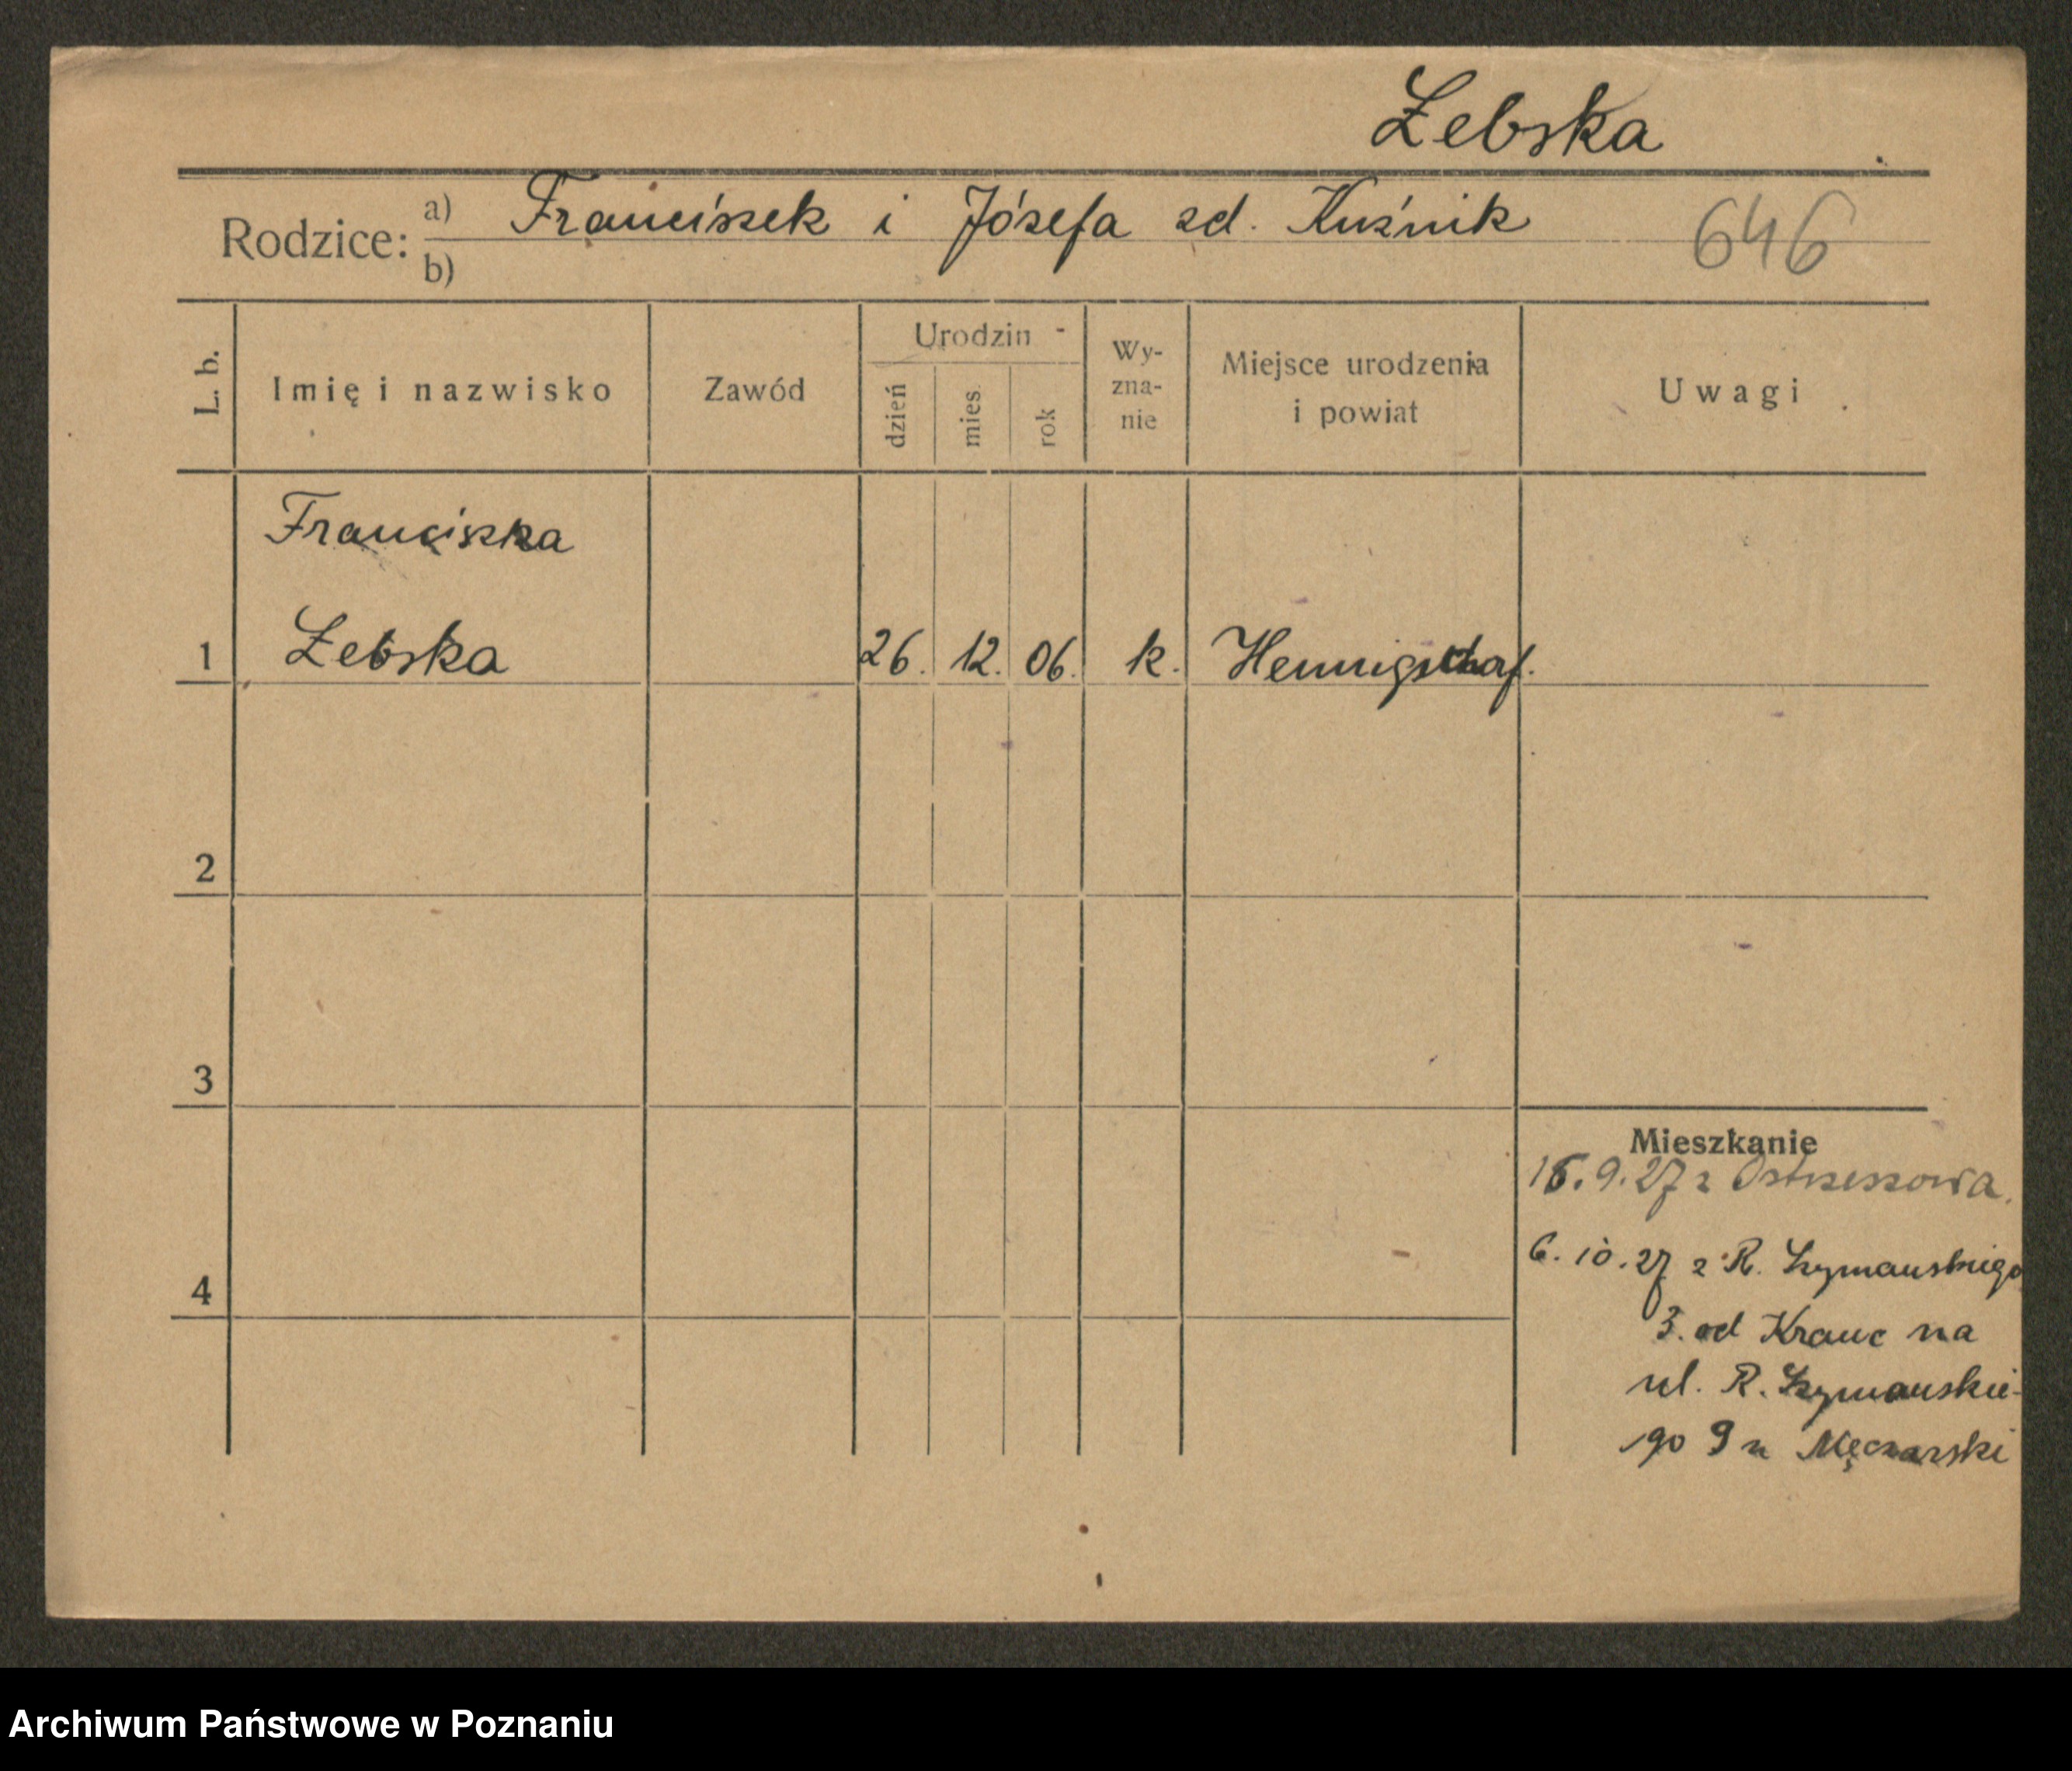 Żebska
Rodzice: a) Franciszek i Józefa zd. Kuźnik
646
b)
L. b. Imię i nazwisko Zawód Urodzin Wyznanie Miejsce urodzenia i powiat Uwagi
dzień mies. rok
Franciszka
1 Żebska 26. 12. 06. k. Hennigsdorf.
2
3
Mieszkanie
15. 9. 27 z Ostrzeszowa.
6. 10. 27 z R. Szymańskiego
4
3. od Krauc na
ul. R. Szymańskie-
go 9 u Męczarski
Archiwum Państwowe w Poznaniu